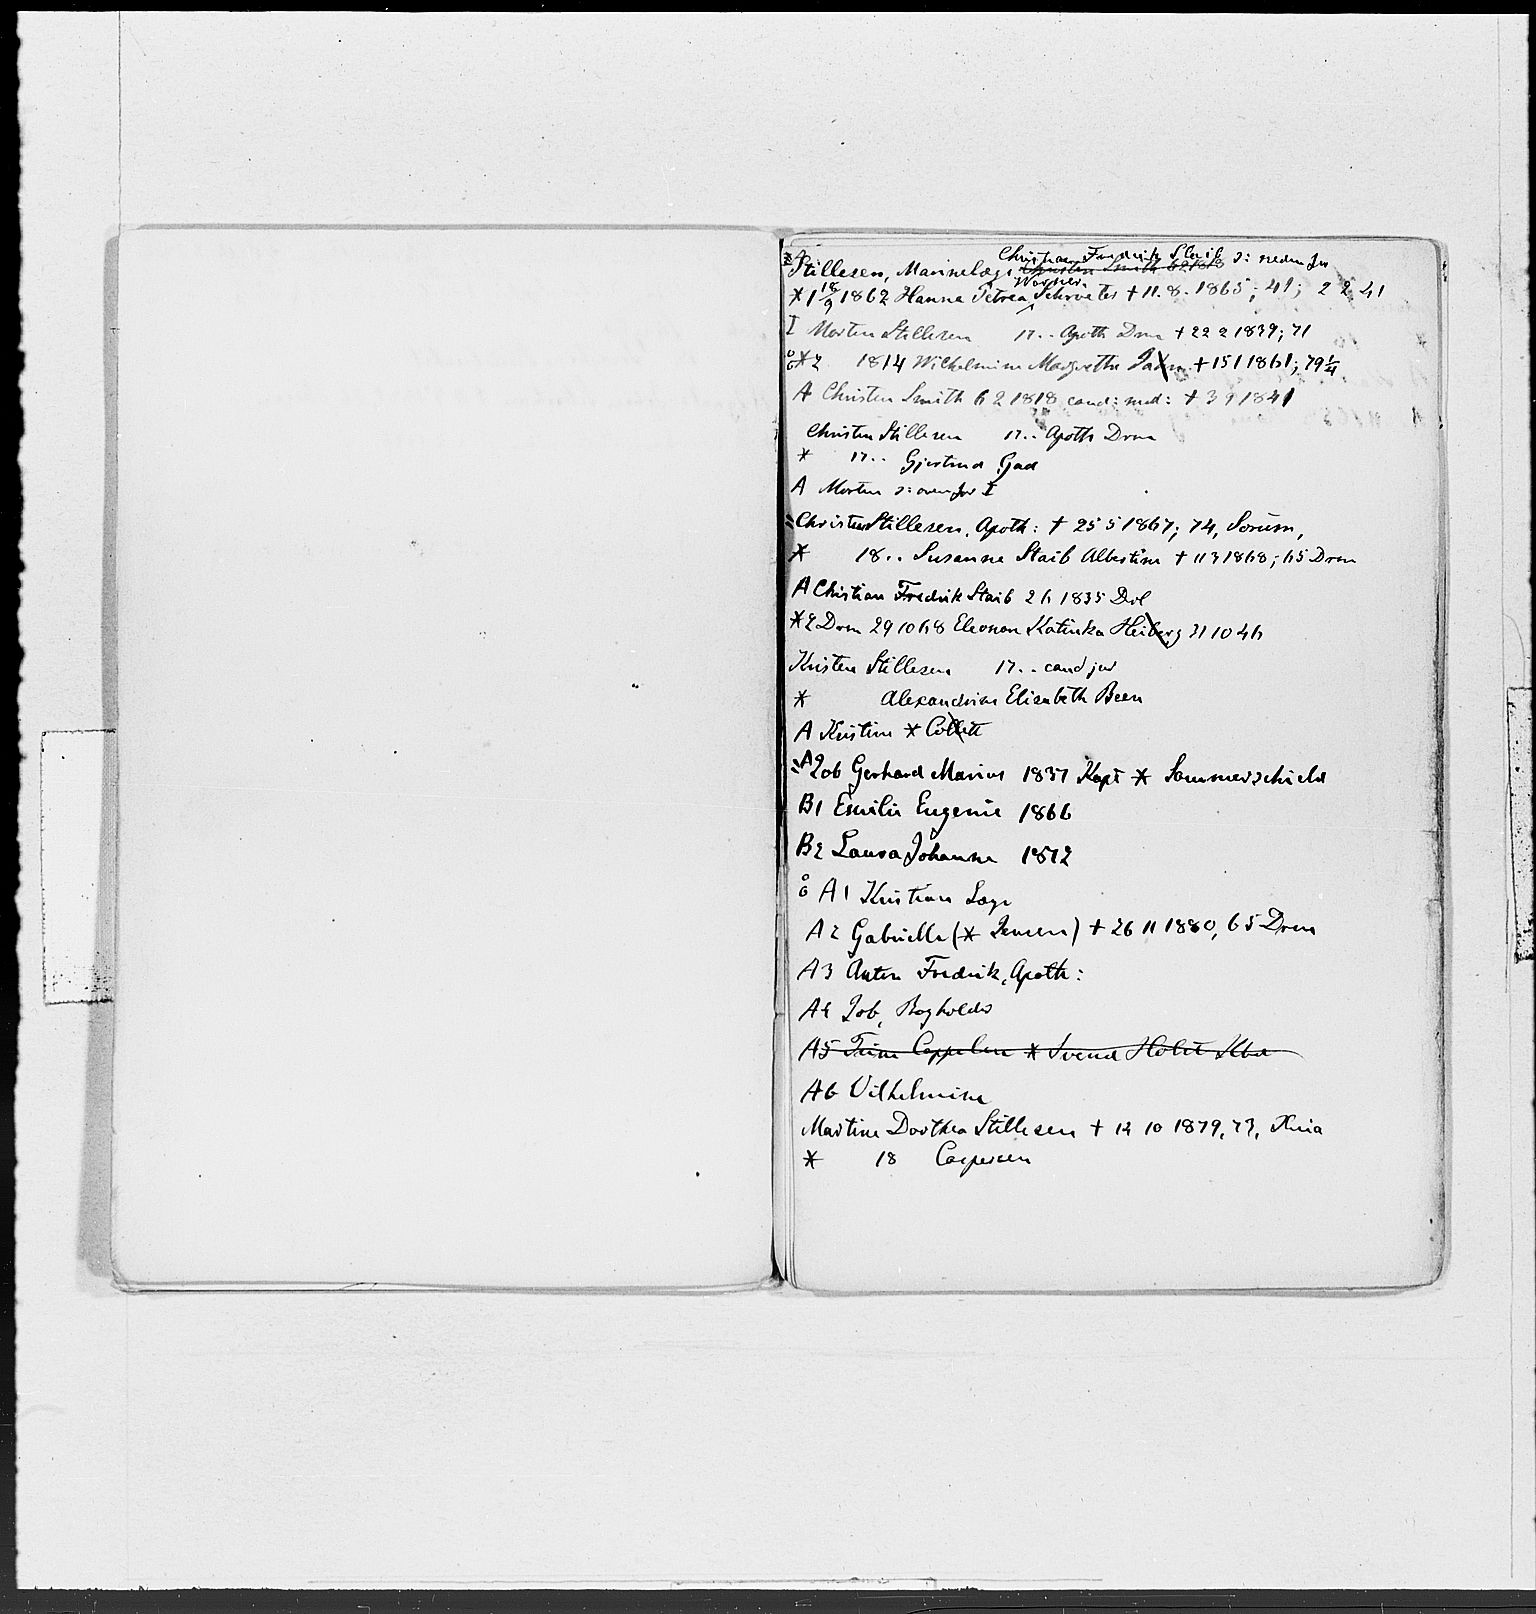 Christian Fredrik Staib ɔ: nedenfor
Stillesen, Marinelæge Christen Smith 6 2 1818
Wörner
* 1 18/9 1862 Hanne Petrea Schrøeter † 11.8.1865; 41; 2 2 41
I Morten Stillesen 17.. Apoth Drm † 22 2 1839; 71
* 2 1814 Wilhelmine Margrethe † 15 1 1861; 79 1/4
A Christen Smith 6 2 1818 cand: med: † 3 9 1841
Christen Stillesen 17.. Apoth Drm
* 17.. Gjertrud Gad
A Morten ɔ: ovenfor I
= Christen Stillesen, Apoth: † 25 5 1867; 74, Sørum,
* 18.. Susanne Staib Albertine † 11 3 1868; 65 Drm
A Christian Fredrik Staib 2 6 1835 Dbl
* 2 Drm 29 10 68 Eleonore Katinka Heiberg 31 10 46
Kristen Stillesen 17.. cand jur
* Alexandrine Elisabeth Been
A Kristine * Collett
= A Job Gerhard Marius 1837 Kapt * Sommerschield
B1 Emilie Eugenie 1866
B2 Laura Johanne 1872
A1 Kristian Læge
A2 Gabrielle (* Jensen) † 26 11 1880, 65 Drm
A3 Anton Fredrik, Apoth:
A4 Job, Bogholder
A5 Trine Cappelen * Svend Holst
A6 Vilhelmine
Martine Dorthea Stillesen † 12 10 1879, 73, Xnia
* 18 Caspersen